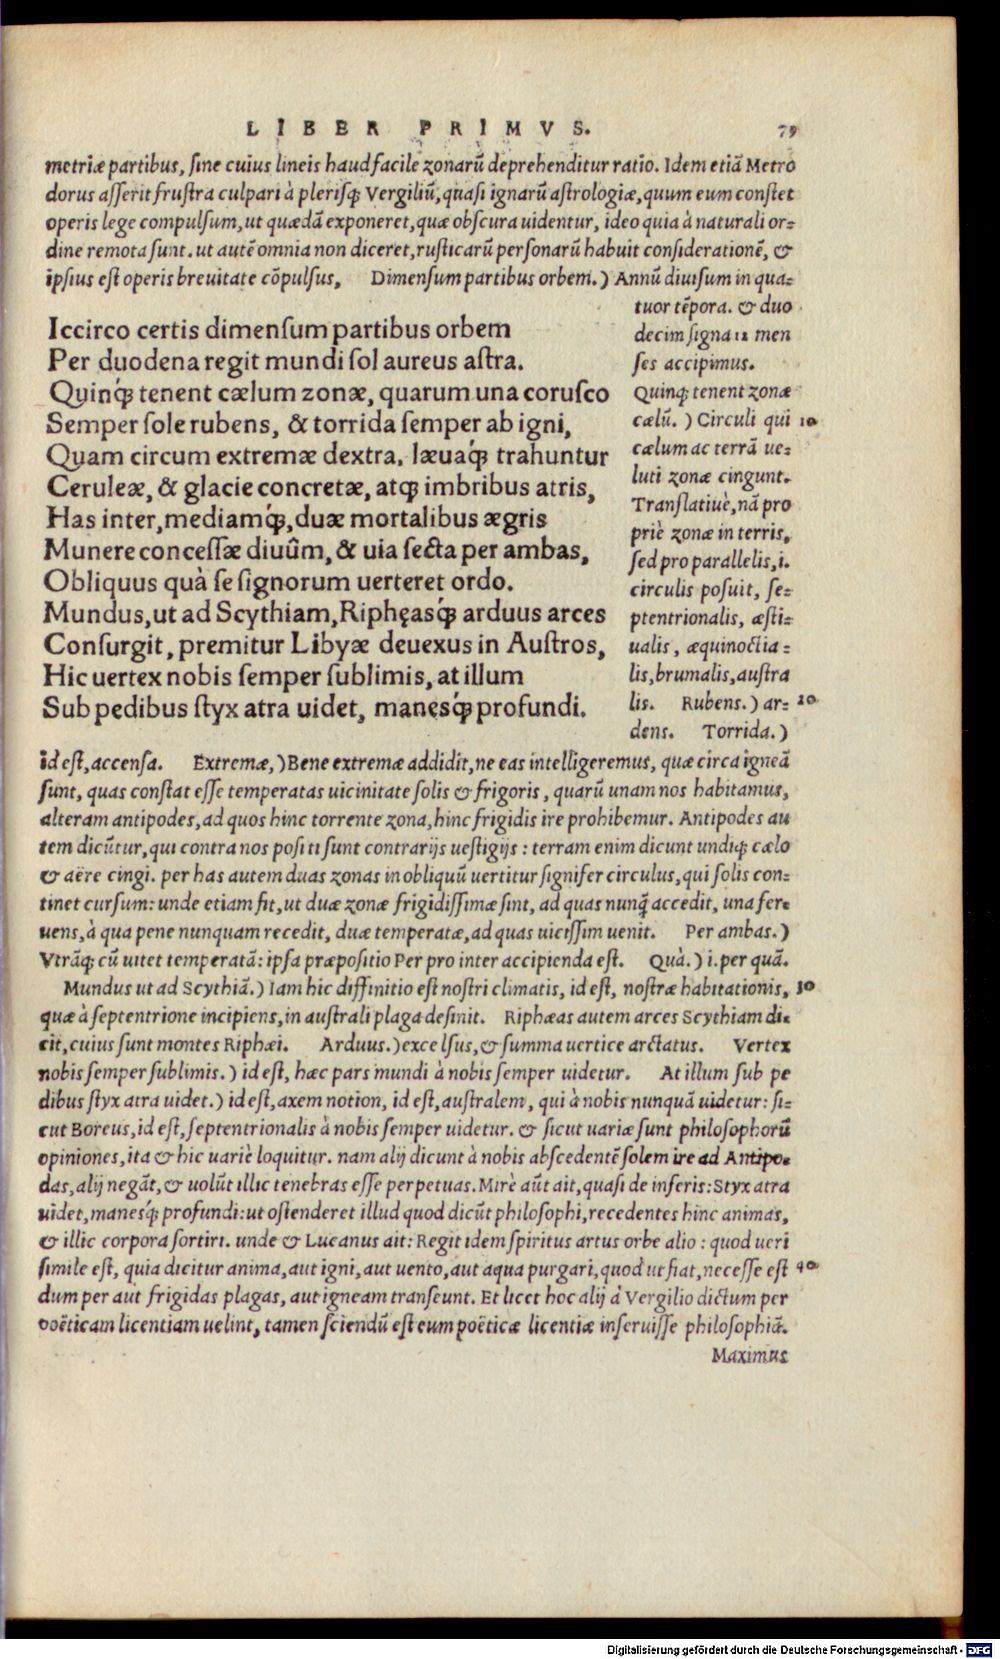 LIBER PRIMVS. 79
metriæ partibus, ſine cuius lineis haud facile zonarũ deprehenditur ratio. Idem etiã Metro
dorus aſſerit fruſtra culpari à pleriſq́; Vergiliũ, quaſi ignarũ aſtrologiæ, quum eum conſtet
operis lege compulſum, ut quædã exponeret, quæ obſcura uidentur, ideo quia à naturali or=
dine remota ſunt. ut autẽ omnia non diceret, ruſticarũ perſonarũ habuit conſiderationẽ, &
ipſius eſt operis breuitate cõpulſus, Dimenſum partibus orbem.) Annũ diuiſum in qua=
tuor tẽpora. & duo
decim ſigna 12 men
ſes accipimus.
Quinq́; tenent zonæ
cælũ. ) Circuli qui 10
cælum ac terrã ue=
luti zonæ cingunt.
Tranſlatiuè, nã pro
priè zonæ in terris,
ſed pro parallelis, i.
circulis poſuit, ſe=
ptentrionalis, æſti=
ualis, æquinoctia=
lis, brumalis, auſtra
lis. Rubens.) ar= 20
dens. Torrida.)
Iccirco certis dimenſum partibus orbem
Per duodena regit mundi ſol aureus aſtra.
Quinq́; tenent cælum zonæ, quarum una coruſco
Semper ſole rubens, & torrida ſemper ab igni,
Quam circum extremæ dextra, læuaq́; trahuntur
Ceruleæ, & glacie concretæ, atq; imbribus atris,
Has inter, mediamq́;, duæ mortalibus ægris
Munere conceſſæ diuûm, & uia ſecta per ambas,
Obliquus quà ſe ſignorum uerteret ordo.
Mundus, ut ad Scythiam, Riphęasq́; arduus arces
Conſurgit, premitur Libyæ deuexus in Auſtros,
Hic uertex nobis ſemper ſublimis, at illum
Sub pedibus ſtyx atra uidet, manesq́; profundi.
id eſt, accenſa. Extremæ,) Bene extremæ addidit, ne eas intelligeremus, quæ circa igneã
ſunt, quas conſtat eſſe temperatas uicinitate ſolis & frigoris, quarũ unam nos habitamus,
alteram antipodes, ad quos hinc torrente zona, hinc frigidis ire prohibemur. Antipodes au
tem dicũtur, qui contra nos poſiti ſunt contrarijs ueſtigijs : terram enim dicunt undiq́; cælo
& aëre cingi. per has autem duas zonas in obliquũ uertitur ſignifer circulus, qui ſolis con=
tinet curſum: unde etiam fit, ut duæ zonæ frigidiſſimæ ſint, ad quas nunq̃ accedit, una fer=
uens, à qua pene nunquam recedit, duæ temperatæ, ad quas uiciſſim uenit. Per ambas.)
Vtrãq́; cũ uitet temperatã: ipſa præpoſitio Per pro inter accipienda eſt. Quà.) i. per quã.
Mundus ut ad Scythiã.) Iam hic diffinitio eſt noſtri climatis, id eſt, noſtræ habitationis, 30
quæ à ſeptentrione incipiens, in auſtrali plaga deſinit. Riphæas autem arces Scythiam di=
cit, cuius ſunt montes Riphæi. Arduus.) excelſus, & ſumma uertice arctatus. Vertex
nobis ſemper ſublimis.) id eſt, hæc pars mundi à nobis ſemper uidetur. At illum ſub pe
dibus ſtyx atra uidet.) id eſt, axem notion, id eſt, auſtralem, qui à nobis nunquã uidetur: ſi=
cut Boreus, id eſt, ſeptentrionalis à nobis ſemper uidetur. & ſicut uariæ ſunt philoſophorũ
opiniones, ita & hic uariè loquitur. nam alij dicunt à nobis abſcedentẽ ſolem ire ad Antipo=
das, alij negãt, & uolũt illic tenebras eſſe perpetuas. Mirè aũt ait, quaſi de inferis: Styx atra
uidet, manesq́; profundi: ut oſtenderet illud quod dicũt philoſophi, recedentes hinc animas,
& illic corpora ſortiri. unde & Lucanus ait: Regit idem ſpiritus artus orbe alio : quod ueri
ſimile eſt, quia dicitur anima, aut igni, aut uento, aut aqua purgari, quod ut fiat, neceſſe eſt 40
dum per aut frigidas plagas, aut igneam tranſeunt. Et licet hoc alij à Vergilio dictum per
poëticam licentiam uelint, tamen ſciendũ eſt eum poëticæ licentiæ inſeruiſſe philoſophiã.
Maximus
Digitalisierung gefördert durch die Deutsche Forschungsgemeinschaft - DFG